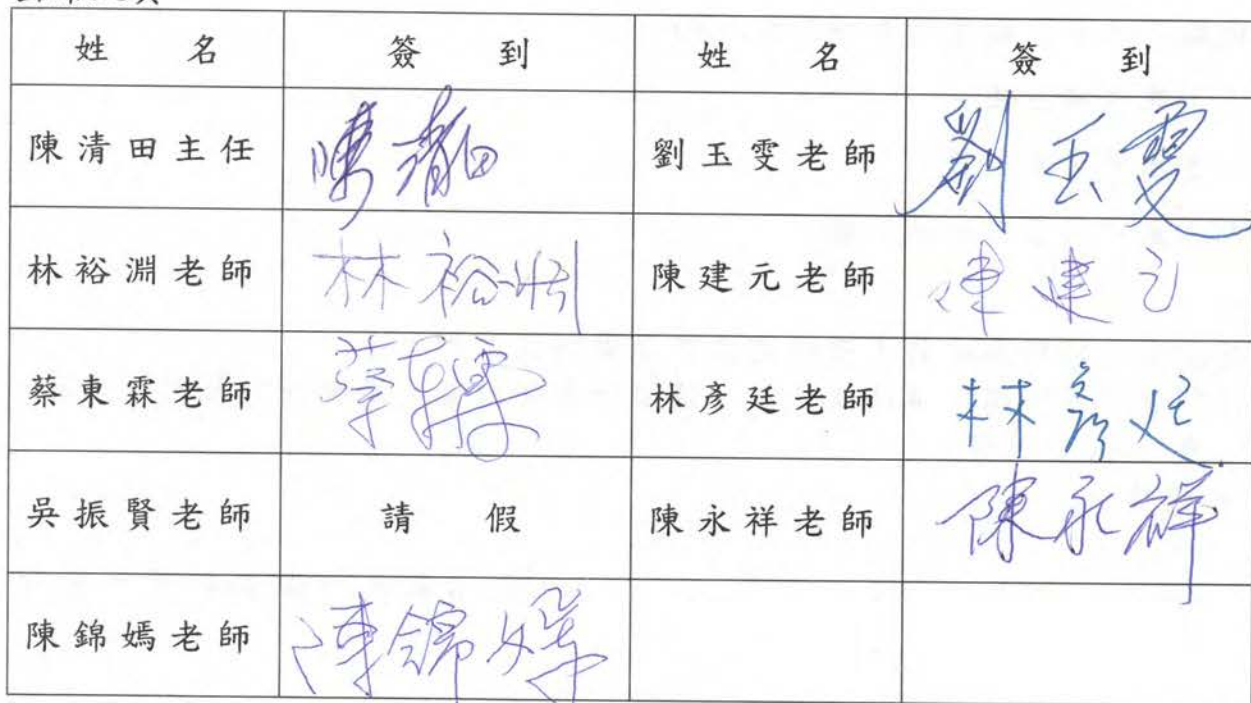 姓名 簽到 姓名 簽到
陳清田主任 陳清田 劉玉雯老師 劉玉雯
林裕淵老師 林裕淵 陳建元老師 陳建元
蔡東霖老師 蔡東霖 林彥廷老師 林彥廷
吳振賢老師 請假 陳永祥老師 陳永祥
陳錦嫣老師 陳錦嫣